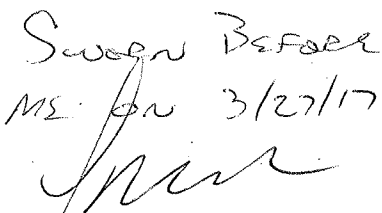 SWORN BEFORE
ME ON 3/27/17